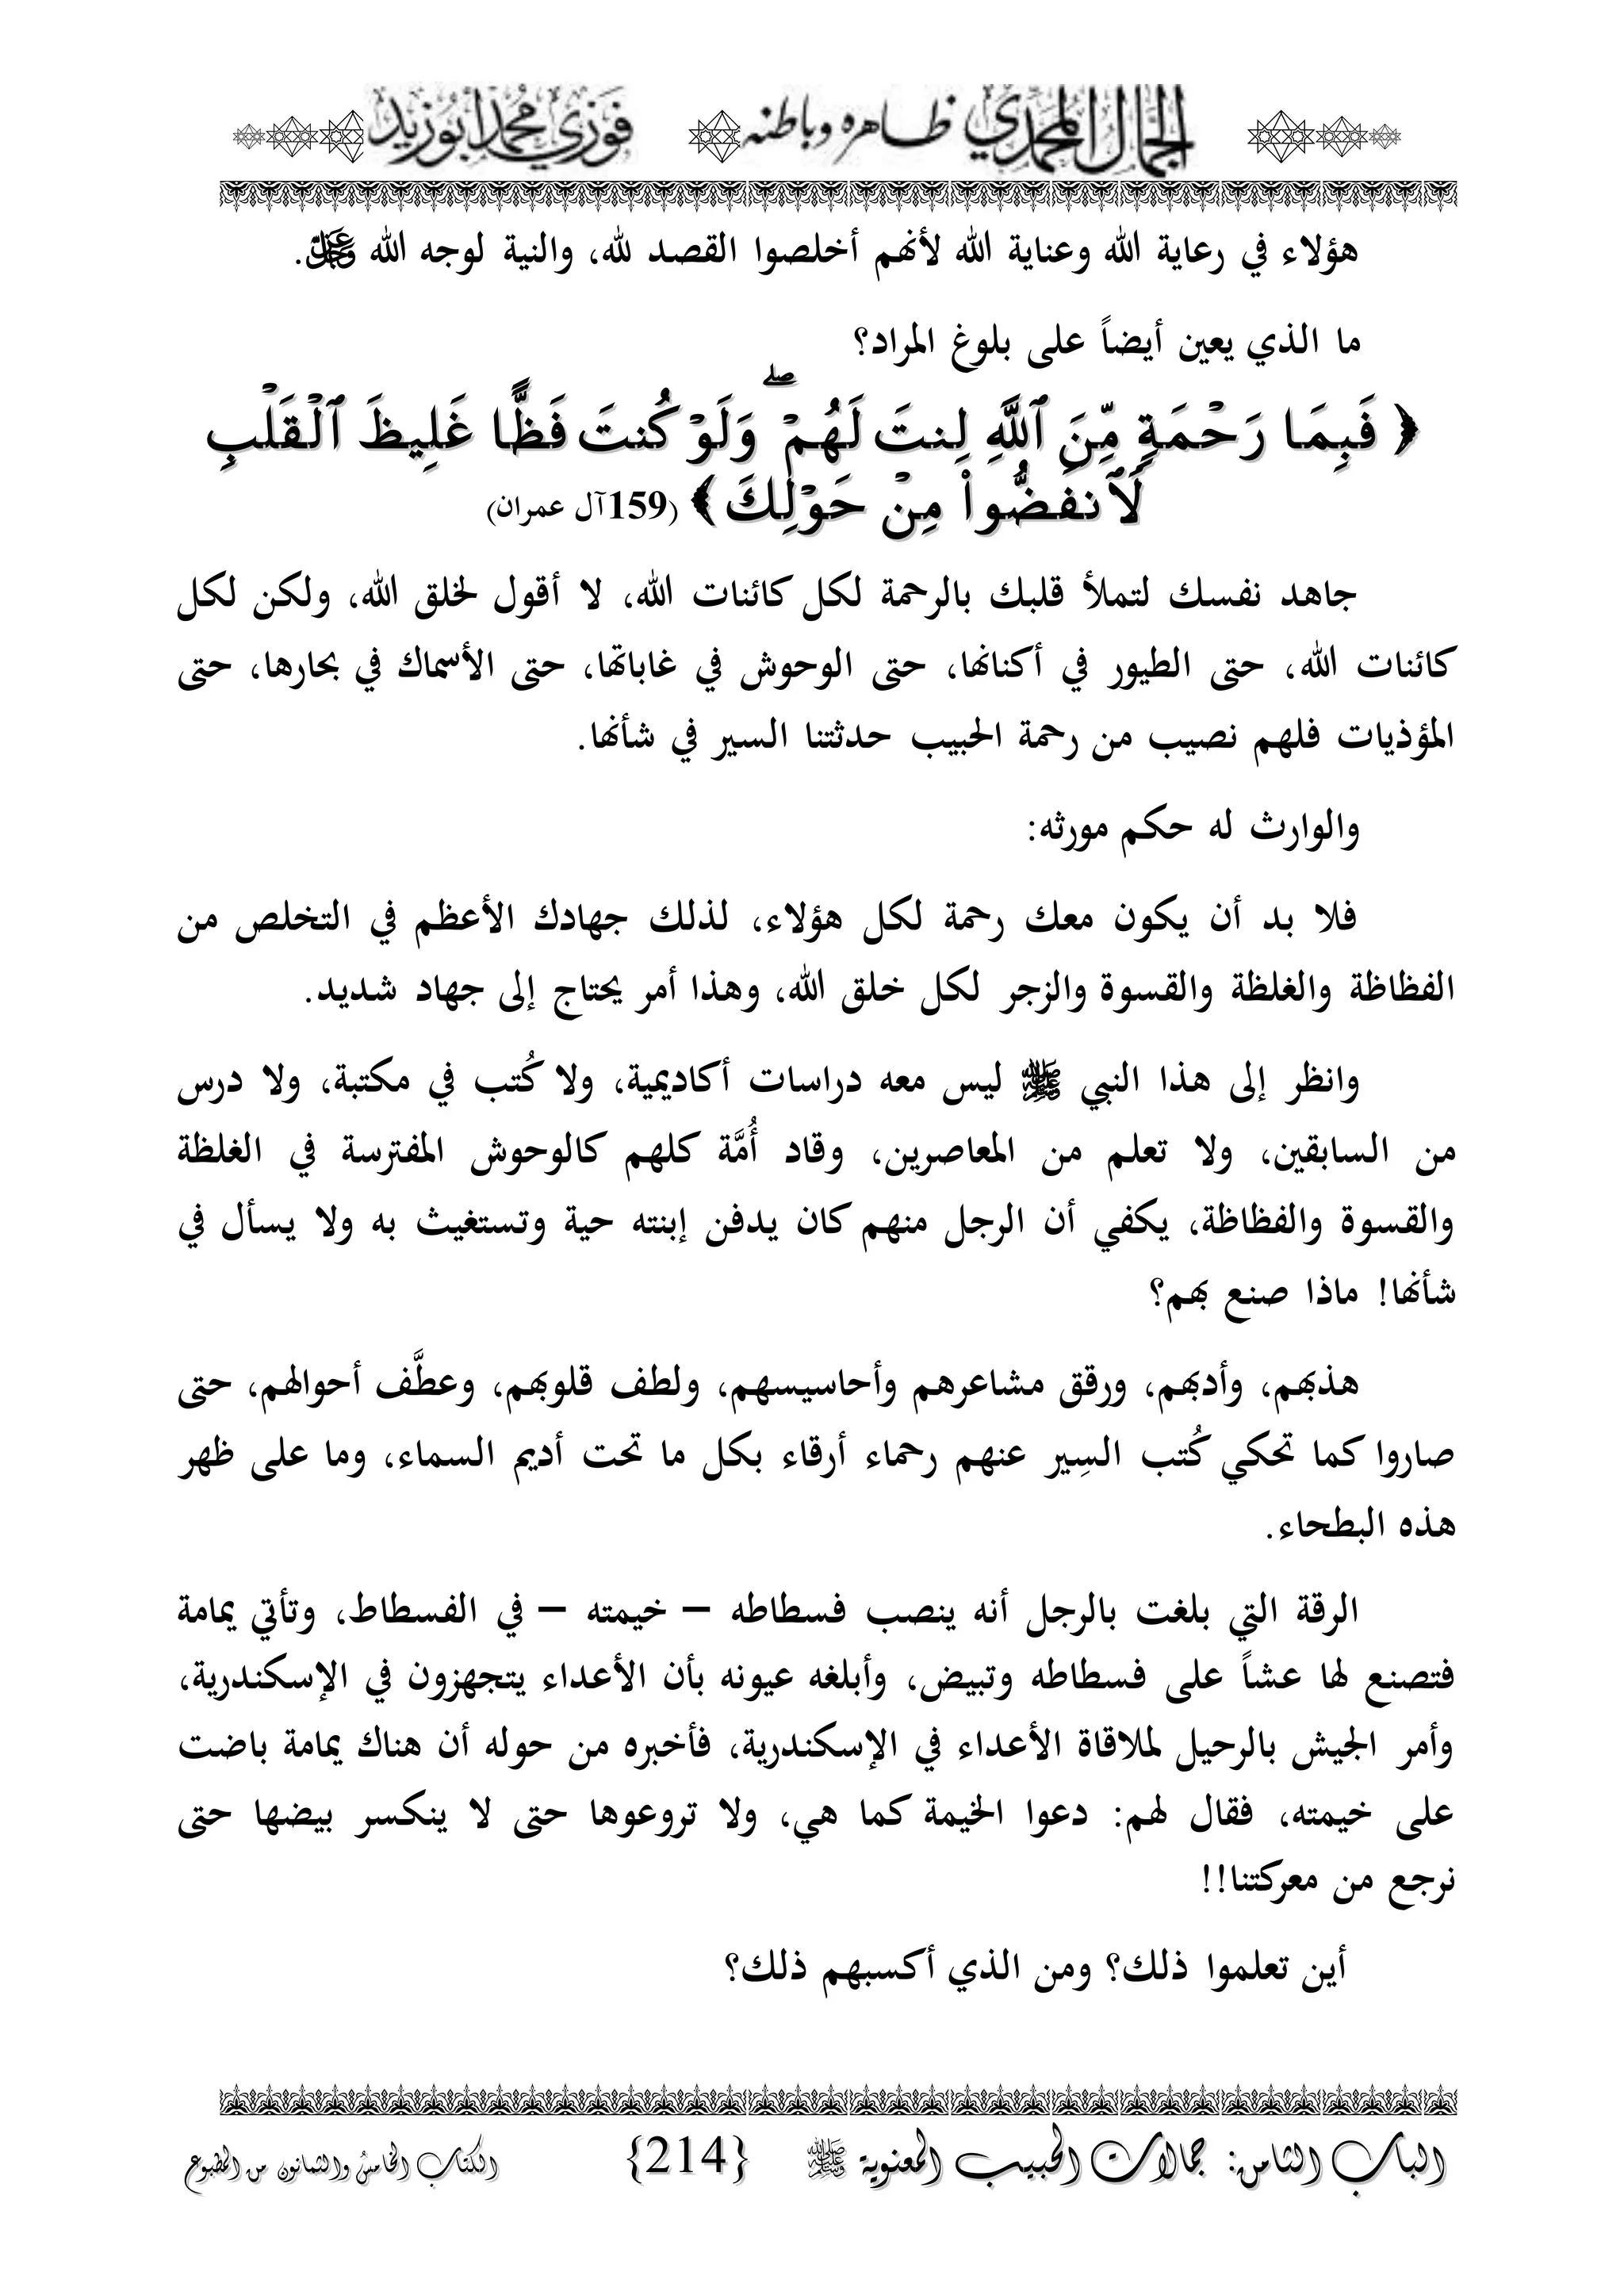 الجمال المحمدي ظاهره وباطنه فوزي محمد أبوزيد
هؤلاء في رعاية الله وعناية الله لأنهم أخلصوا القصد لله، والنية لوجه الله عز وجل.
ما الذي يعين أيضاً على بلوغ المراد؟
﴿ فَبِمَا رَحْمَةٍ مِّنَ ٱللَّهِ لِنتَ لَهُمْ ۖ وَلَوْ كُنتَ فَظًّا غَلِيظَ ٱلْقَلْبِ
لَٱنفَضُّوا۟ مِنْ حَوْلِكَ ﴾ (159آل عمران)
جاهد نفسك لتملأ قلبك بالرحمة لكل كائنات الله، لا أقول لخلق الله، ولكن لكل
كائنات الله، حتى الطيور في أكنانها، حتى الوحوش في غاباتها، حتى الأسماك في بحارها، حتى
المؤذيات فلهم نصيب من رحمة الحبيب حدثتنا السير في شأنها.
والوارث له حكم مورثه:
فلا بد أن يكون معك رحمة لكل هؤلاء، لذلك جهادك الأعظم في التخلص من
الفظاظة والغلظة والقسوة والزجر لكل خلق الله، وهذا أمر يحتاج إلى جهاد شديد.
وانظر إلى هذا النبي ﷺ ليس معه دراسات أكاديمية، ولا كُتب في مكتبة، ولا درس
من السابقين، ولا تعلم من المعاصرين، وقاد أُمَّة كلهم كالوحوش المفترسة في الغلظة
والقسوة والفظاظة، يكفي أن الرجل منهم كان يدفن إبنته حية وتستغيث به ولا يسأل في
شأنها! ماذا صنع بهم؟
هذبهم، وأدبهم، ورقق مشاعرهم وأحاسيسهم، ولطف قلوبهم، وعطَّف أحوالهم، حتى
صاروا كما تحكي كُتب السِير عنهم رحماء أرقاء بكل ما تحت أديم السماء، وما على ظهر
هذه البطحاء.
الرقة التي بلغت بالرجل أنه ينصب فسطاطه – خيمته – في الفسطاط، وتأتي يمامة
فتصنع لها عشاً على فسطاطه وتبيض، وأبلغه عيونه بأن الأعداء يتجهزون في الإسكندرية،
وأمر الجيش بالرحيل لملاقاة الأعداء في الإسكندرية، فأخبره من حوله أن هناك يمامة باضت
على خيمته، فقال لهم: دعوا الخيمة كما هي، ولا تروعوها حتى لا ينكسر بيضها حتى
نرجع من معركتنا!!
أين تعلموا ذلك؟ ومن الذي أكسبهم ذلك؟
الباب الثامن: جمالات الحبيب المعنوية ﷺ {214} الكتاب الخامس والثمانون من المطبوع